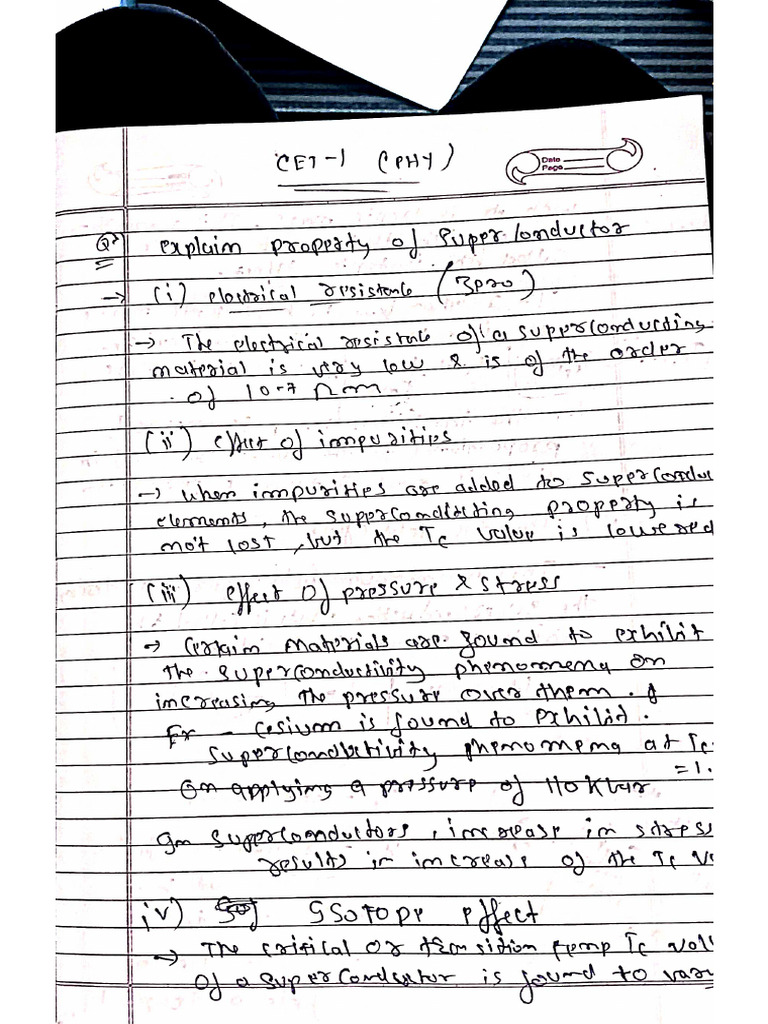 CET-1 (PHY)
Date
Page
Q explain property of Superconductor
→ (i) electrical resistance (Zero)
→ The electrical resistance of a superconducting
material is very low & is of the order
of 10-7 Ωm
(ii) effect of impurities
→ when impurities are added to superconduc
elements, the superconducting property is
not lost, but the Tc value is lowered
(iii) effect of pressure & stress
→ Certain materials are found to exhibit
the superconductivity phenomena on
increasing the pressure over them.
Ex - Cesium is found to exhibit.
superconductivity phenomena at Tc
= 1.
On applying a pressure of 110 Kbar
In superconductors, increase in stress
results in increase of the Tc v
iv) Isotope effect
→ The critical or transition temp Tc val
of a superconductor is found to vary